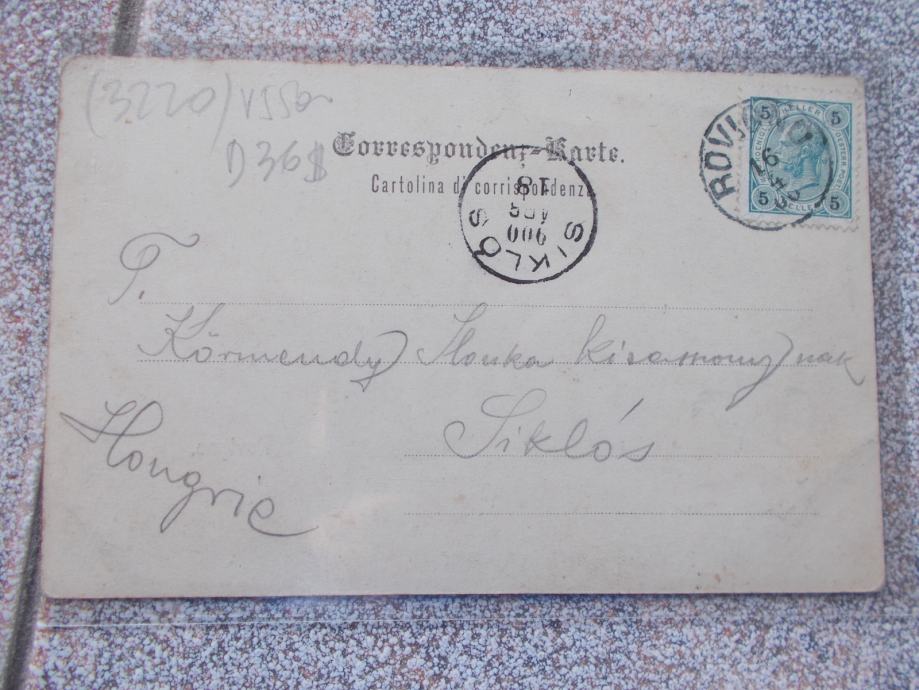 (3220)
D36
Correspondenz-Karte.
Cartolina di corrispondenza
SIKLÓS
18
900
ROVIGNO
5 HELLER 5
5 HELLER 5
T.
Körmendy Ilonka kisasszonynak
Siklós
Hongrie